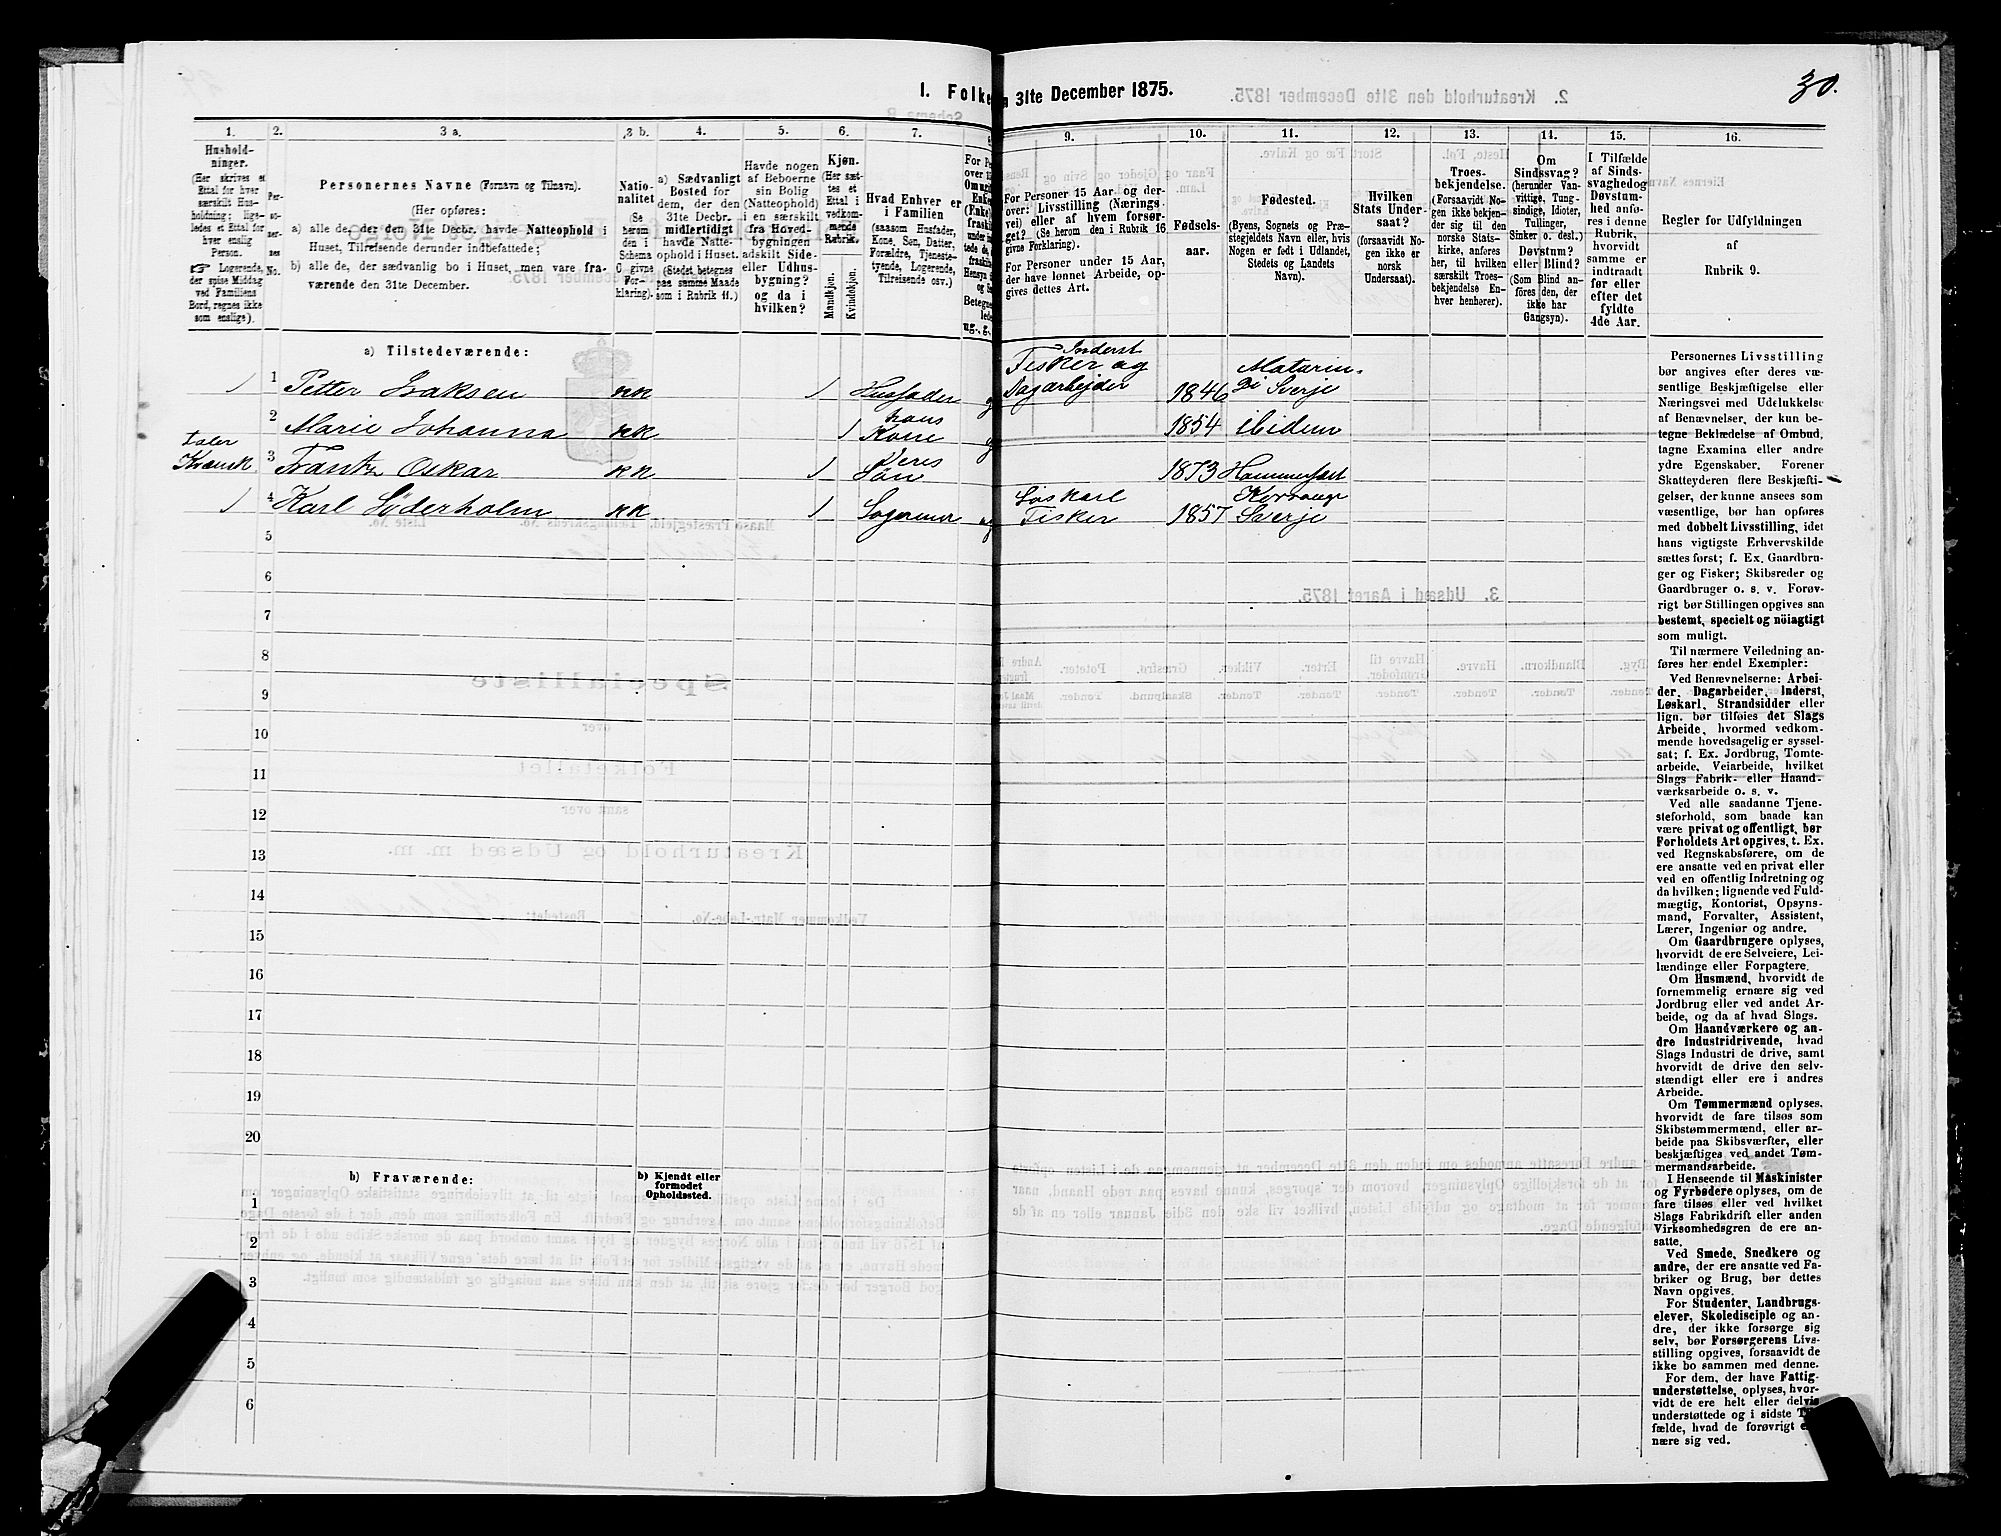 30.
1. Folke
n 31te December 1875.
1.
2.
3 a.
3 b.
4.
5.
6.
7.
9.
10.
11.
12.
13.
14.
15.
16.
Hushold-
ninger.
(Her skrives et
Ettal for hver
særskilt Hus-
holdning; lige-
ledes et Ettal for
hver enslig
Person.
☞ Logerende,
der spise Middag
ved Familiens
Bord, regnes ikke
som enslige).
Per-
so-
ner-
nes
No.
Personernes Navne (Fornavn og Tilnavn).
(Her opføres:
a) alle de, der den 31te Decbr. havde Natteophold i
Huset, Tilreisende derunder indbefattede;
b) alle de, der sædvanlig bo i Huset, men vare fra-
værende den 31te December.
Natio-
nalitet
(Se
herom
den i
Schema
C givne
For-
klaring).
a) Sædvanligt
Bosted for
dem, der den
31te Decbr.
midlertidigt
havde Natte-
ophold i Huset.
(Stedet betegnes
paa samme Maade
som i Rubrik 11.)
Havde nogen
af Beboerne
sin Bolig
(Natteophold)
i en særskilt
fra Hoved-
bygningen
adskilt Side-
eller Udhus-
bygning?
og da i
hvilken?
Kjøn.
(Her sæt-
tes et
Ettal i
vedkom-
mende
Rubrik.
Mandkjøn.
Kvindekjøn.
Hvad Enhver er
i Familien
(saasom Husfader,
Kone, Søn, Datter,
Forældre, Tjeneste-
tyende, Logerende,
Tilreisende osv.)
For Personer 15 Aar og der-
over: Livsstilling (Nærings-
vei) eller af hvem forsør-
get? (Se herom den i Rubrik 16
givne Forklaring).
For Personer under 15 Aar,
der have lønnet Arbeide, op-
gives dettes Art.
Fødsels-
aar.
Fødested.
(Byens, Sognets og Præ-
stegjeldets Navn eller, hvis
Nogen er født i Udlandet,
Stedets og Landets
Navn).
Hvilken
Stats Under-
saat?
(forsaavidt No-
gen ikke er
norsk
Undersaat).
Troes-
bekjendelse.
(Forsaavidt No-
gen ikke bekjen-
der sig til den
norske Stats-
kirke, anføres
her, til hvilken
særskilt Troes-
bekjendelse En-
hver henhører).
Om
Sindssvag?
(herunder Van-
vittige, Tung-
sindige, Idioter,
Tullinger,
Sinker o. desl.)
Døvstum?
eller Blind?
(Som Blind an-
føres den, der
ikke har
Gangsyn).
I Tilfælde
af Sinds-
svaghed og
Døvstum-
hed anfø-
res i denne
Rubrik,
hvorvidt
samme er
indtraadt
før eller
efter det
fyldte
4de Aar.
Regler for Udfyldningen
af
Rubrik 9.
a) Tilstedeværende:
1 1 Petter Isaksen kk 1 Husfader g Inderst Fisker og Dagarbejder 1846 Matarin- gi Sverje
2 Marie Johanna kk 1 hans Kone g 1854 ibidem
Taler Kvænsk 3 Frantz Oskar kk 1 Deres Søn 1873 Hammerfest
1 4 Karl Søderholm kk 1 Logerende Løskarl Fisker 1857 Sverje
5
6
7
8
9
10
11
12
13
14
15
16
17
18
19
20
b) Fraværende:
b) Kjendt eller
formodet
Opholdssted.
1
2
3
4
5
6
Personernes Livsstilling
bør angives efter deres væ-
sentlige Beskjæftigelse eller
Næringsvei med Udelukkelse
af Benævnelser, der kun be-
tegne Beklædelse af Ombud,
tagne Examina eller andre
ydre Egenskaber. Forener
Skatteyderen flere Beskjæfti-
gelser, der kunne ansees som
væsentlige, bør han opføres
med dobbelt Livsstilling, idet
hans vigtigste Erhvervskilde
sættes først; f. Ex. Gaardbru-
ger og Fisker; Skibsreder og
Gaardbruger o. s. v. Forøv-
rigt bør Stillingen opgives saa
bestemt, specielt og nöiagtigt
som muligt.
Til nærmere Veiledning an-
føres her endel Exempler:
Ved Benævnelserne: Arbei-
der, Dagarbeider, Inderst,
Løskarl, Strandsidder eller
lign. bør tilføies det Slags
Arbeide, hvormed vedkom-
mende hovedsagelig er syssel-
sat; f. Ex. Jordbrug, Tomte-
arbeide, Veiarbeide, hvilket
Slags Fabrik- eller Haand-
værksarbeide o. s. v.
Ved alle saadanne Tjene-
steforhold, som baade kan
være privat og offentligt, bør
Forholdets Art opgives, t. Ex.
ved Regnskabsførere, om de
ere ansatte ved en privat eller
ved en offentlig Indretning og
da hvilken; lignende ved Fuld-
mægtig, Kontorist, Opsyns-
mand, Forvalter, Assistent,
Lærer, Ingeniør og andre.
Om Gaardbrugere oplyses,
hvorvidt de ere Selveiere, Lei-
lændinge eller Forpagtere.
Om Husmænd, hvorvidt de
fornemmelig ernære sig ved
Jordbrug eller ved andet Ar-
beide, og da af hvad Slags.
Om Haandværkere og an-
dre Industridrivende, hvad
Slags Industri de drive, samt
hvorvidt de drive den selv-
stændigt eller ere i andres
Arbeide.
Om Tømmermænd oplyses,
hvorvidt de fare tilsøs som
Skibstømmermænd, eller ar-
beide paa Skibsværfter, eller
beskjæftiges ved andet Tøm-
mermandsarbeide.
I Henseende til Maskinister
og Fyrbødere oplyses, om de
fare tilsøs eller ved hvilket
Slags Fabrikdrift eller anden
Virksomhedsgren de ere an-
satte.
Ved Smede, Snedkere og
andre, der ere ansatte ved Fa-
briker og Brug, bør dettes
Navn opgives.
For Studenter, Landbrugs-
elever, Skoledisciple og an-
dre, der ikke forsørge sig
selv, bør Forsørgerens Livs-
stilling opgives, forsaavidt de
ikke bo sammen med denne.
For dem, der have Fattig-
understøttelse, oplyses, hvor-
vidt de ere helt eller delvis
understøttede og i sidste Til-
fælde, hvad de forøvrigt er-
nære sig ved.